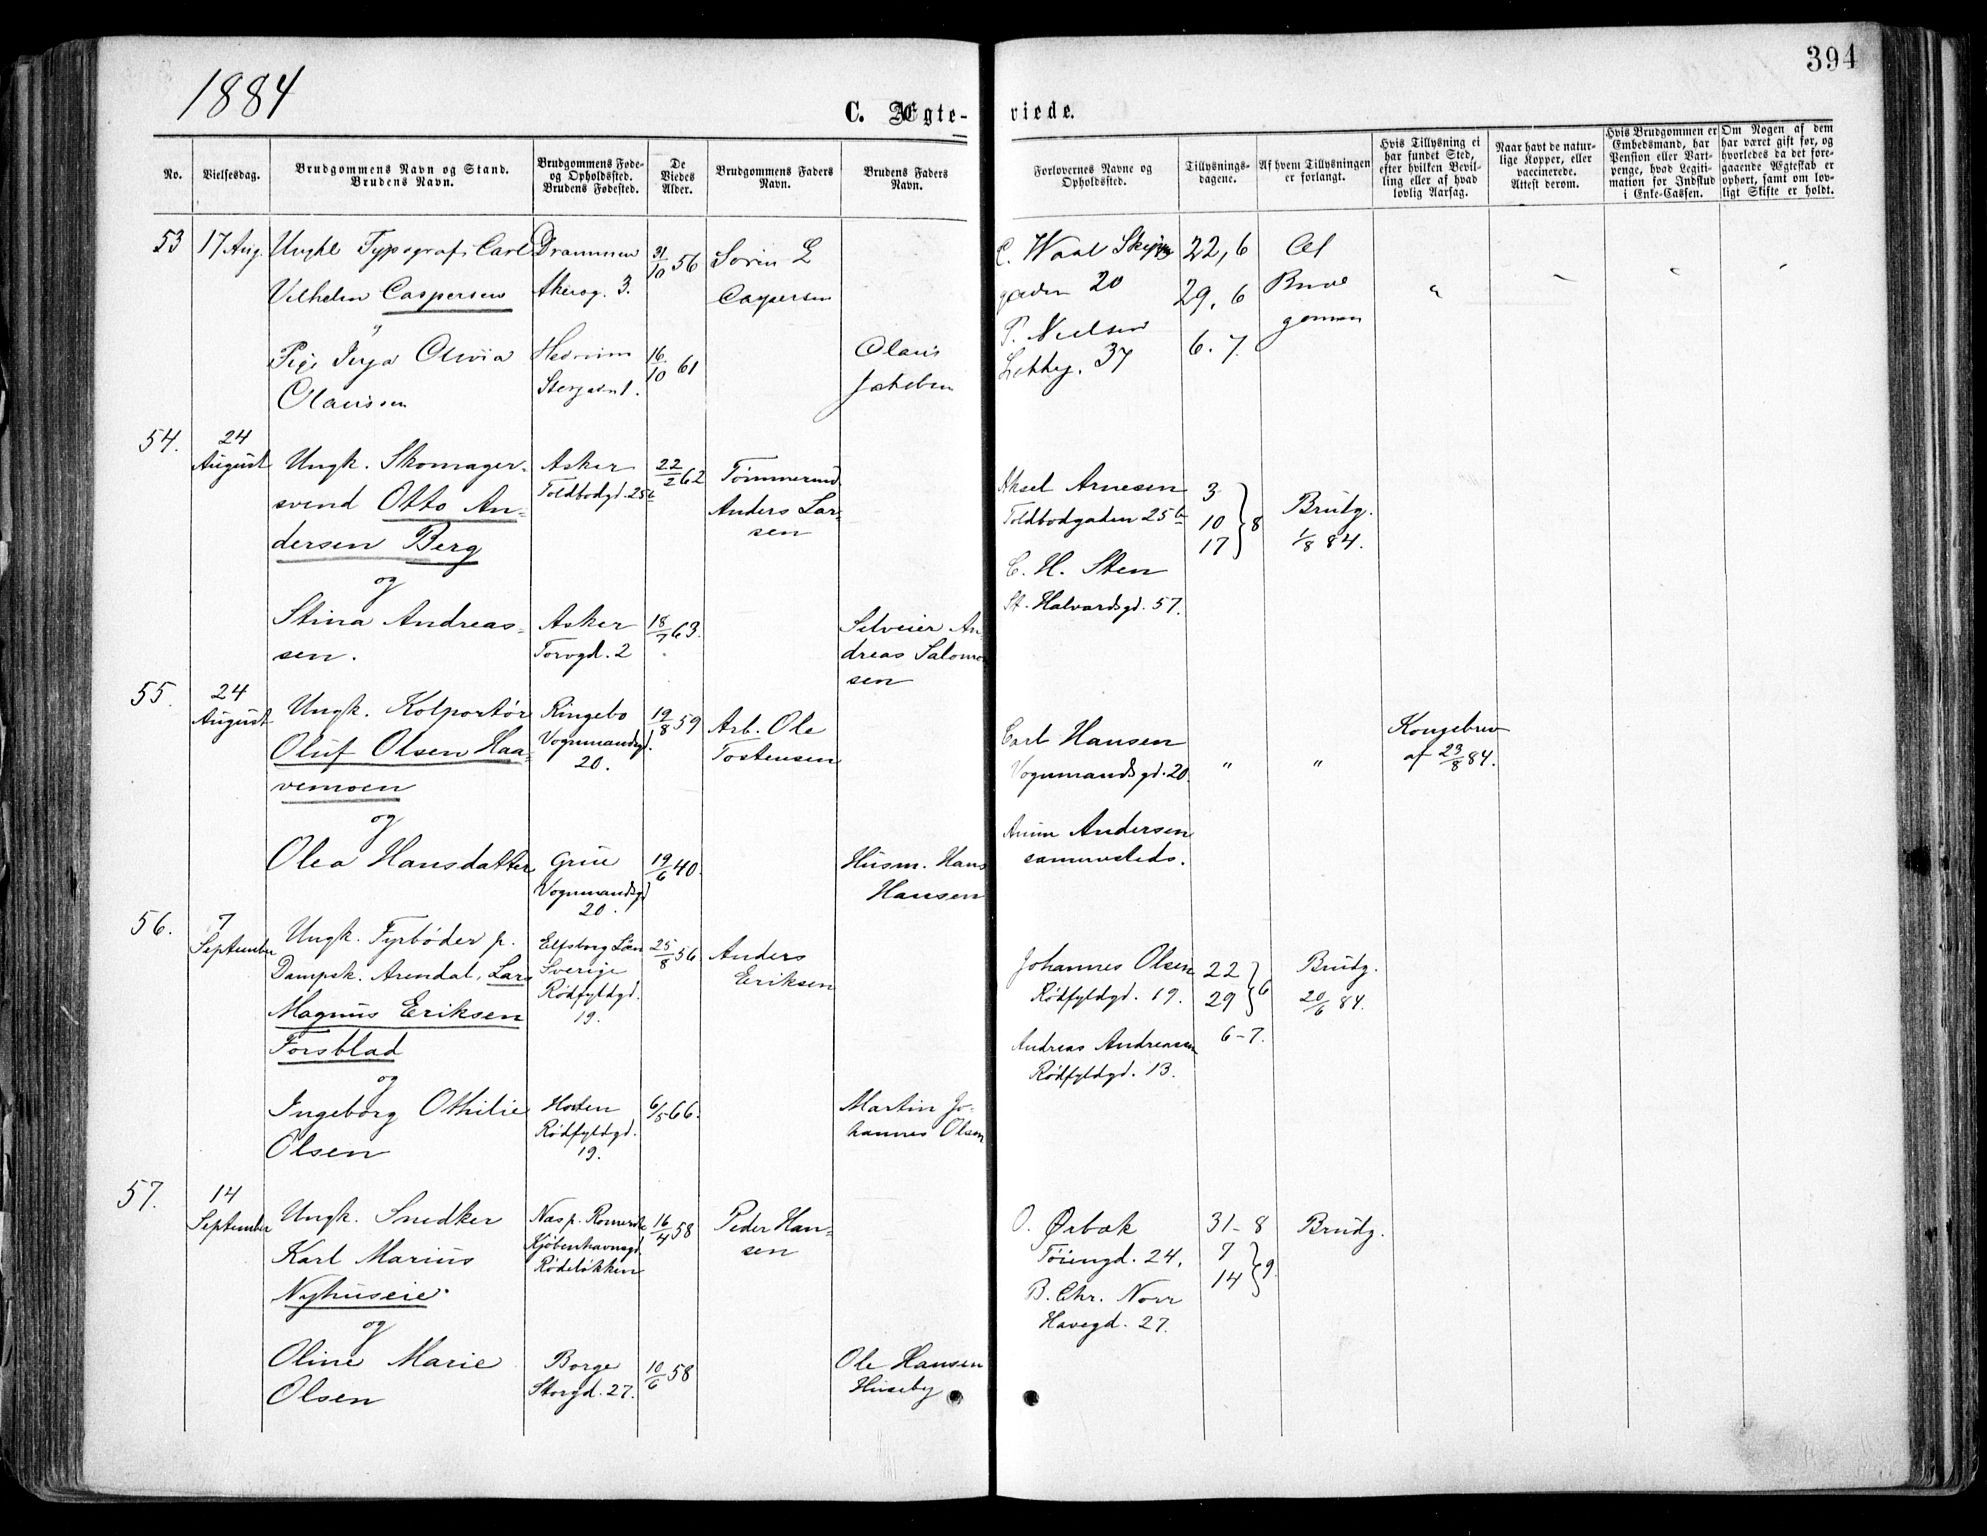 394
1884
C. Ægte-
viede.
No.
Vielsesdag.
Brudgommens Navn og Stand.
Brudens Navn.
Brudgommens Føde-
og Opholdssted.
Brudens Fødested.
De
Viedes
Alder.
Brudgommens Faders
Navn.
Brudens Faders
Navn.
Forlovernes Navne og
Opholdssted.
Tillysnings-
dagene.
Af hvem Tillysningen
er forlangt.
Hvis Tillysning ei
har fundet Sted,
efter hvilken Bevil-
ling eller af hvad
lovlig Aarsag.
Naar havt de natur-
lige Kopper, eller
vaccinerede.
Attest derom.
Hvis Brudgommen er
Embedsmand, har
Pension eller Vart-
penge, hvad Legiti-
mation for Indskud
i Enke-Cassen.
Om Nogen af dem
har været gift før, og
hvorledes da det fore-
gaaende Ægteskab er
ophørt, samt om lov-
ligt Skifte er holdt.
53
17 Aug.
Ungkl Typograf Carl
Vilhelm Caspersen
Drammen
Akersg. 3.
31/10 56
Sørin L
Caspersen
Pige Inga Olivia
Olaussen
16/10 61
Olaus
Jakobsen
C. Waal
gaden 20
P. Nielsen
37
22, 6
29, 6
6. 7.
"
54.
24
August
Ungk. Skomager-
svend Otto An-
dersen Berg
og
Stina Andreas-
sen.
Asker
Toldbodgd. 25b
22/2 62
Tømmermd
Anders Lar-
sen
Asker
Torvgd. 2
18/7 63.
Selveier An-
dreas Salomon
sen
Aksel Arnesen
Toldbodgaden 25b
C. H. Sten
St. Halvardsgd. 57.
3
10
17
} 8
Brudg.
1/8 84.
55.
24
August
Ungk. Kolportør
Oluf Olsen Haa-
vemoen
og
Olea Hansdatter
Ringebo
Vognmandsgd.
20.
19/8 59
Arb. Ole
Tostensen
Grue
Vognmandsgd
20.
19/6 40.
Husm. Hans
Hansen
Carl Hansen
Vognmandsgd. 20.
Andersen
sammesteds.
"
"
Kongebrev
af 23/8 84.
56.
7
September
Ungk. Fyrbøder p.
Dampsk. Arendal, Lars
Magnus Eriksen
Forsblad
og
Ingeborg Othilie
Olsen
Elfsborg Län
Sverige
Rødfyldgd.
19.
25/8 56
Anders
Eriksen
Horten
Rødfyldgd.
19.
6/5 66.
Martin Jo-
hannes Olsen
Johannes Olsen
Rødfyldgd. 19.
Andreas Andreasen
Rødfyldgd. 13.
22
29
} 6
6-7.
Brudg.
20/6 84.
57.
14
September
Ungk. Snedker
Karl Marius
Nyhuseie
og
Oline Marie
Olsen
Næs p. Romerike
Kjøbenhavnsgd.
Rødeløkken
16/4 58
Peder Han-
sen
Borge
Storgd. 27.
10/6 58
Ole Hansen
Huseby
O. Ørbæk
Tøiengd. 24.
B. Chr. Norr
Havegd. 27.
31-8
7
14
} 9.
Brudg.